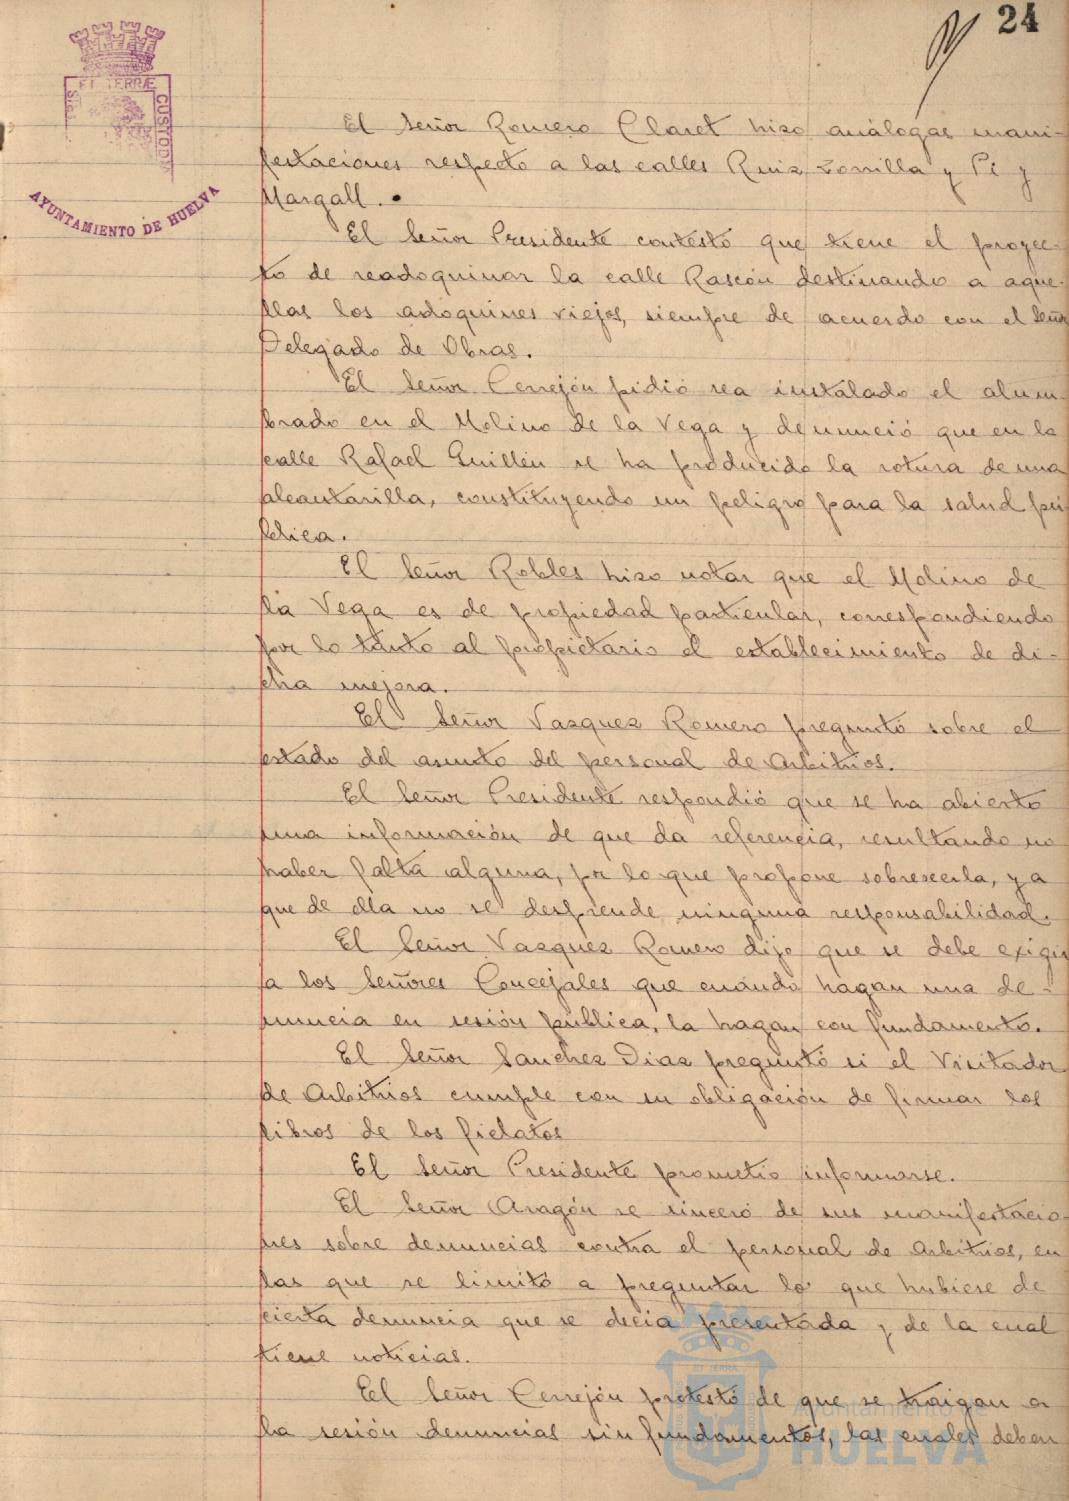 24
ET TERRÆ
CUSTODI
AYUNTAMIENTO DE HUELVA
El Señor Romero Claret hizo análogas mani-
festaciones respecto a las calles Ruiz Zorrilla y Pi y
Margall.
El Señor Presidente contestó que tiene el proyec-
to de readoquinar la calle Rascón destinando a aque-
llas los adoquines viejos, siempre de acuerdo con el Señor
Delegado de Obras.
El Señor Cerrejón pidió sea instalado el alum-
brado en el Molino de la Vega y denunció que en la
calle Rafael Guillén se ha producido la rotura de una
alcantarilla, constituyendo un peligro para la salud pú
blica.
El Señor Robles hizo notar que el Molino de
la Vega es de propiedad particular, correspondiendo
por lo tanto al propietario el establecimiento de di-
cha mejora.
El Señor Vazquez Romero preguntó sobre el
estado del asunto del personal de Arbitrios.
El Señor Presidente respondió que se ha abierto
una información de que da referencia, resultando no
haber falta alguna, por lo que propone sobreseerla, ya
que de ella no se desprende ninguna responsabilidad.
El Señor Vazquez Romero dijo que se debe exigir
a los Señores Concejales que cuando hagan una de-
nuncia en sesión pública, la hagan con fundamento.
El Señor Sanchez Diaz preguntó si el Visitador
de Arbitrios cumple con su obligación de firmar los
libros de los fielatos
El Señor Presidente prometió informarse.
El Señor Aragón se sinceró de sus manifestacio
nes sobre denuncias contra el personal de Arbitrios, en
las que se limitó a preguntar lo que hubiese de
cierta denuncia que se decia presentada y de la cual
tiene noticias.
El Señor Cerrejón protestó de que se traigan a
la sesión denuncias sin fundamentos, las cuales deben
Ayuntamiento de
HUELVA